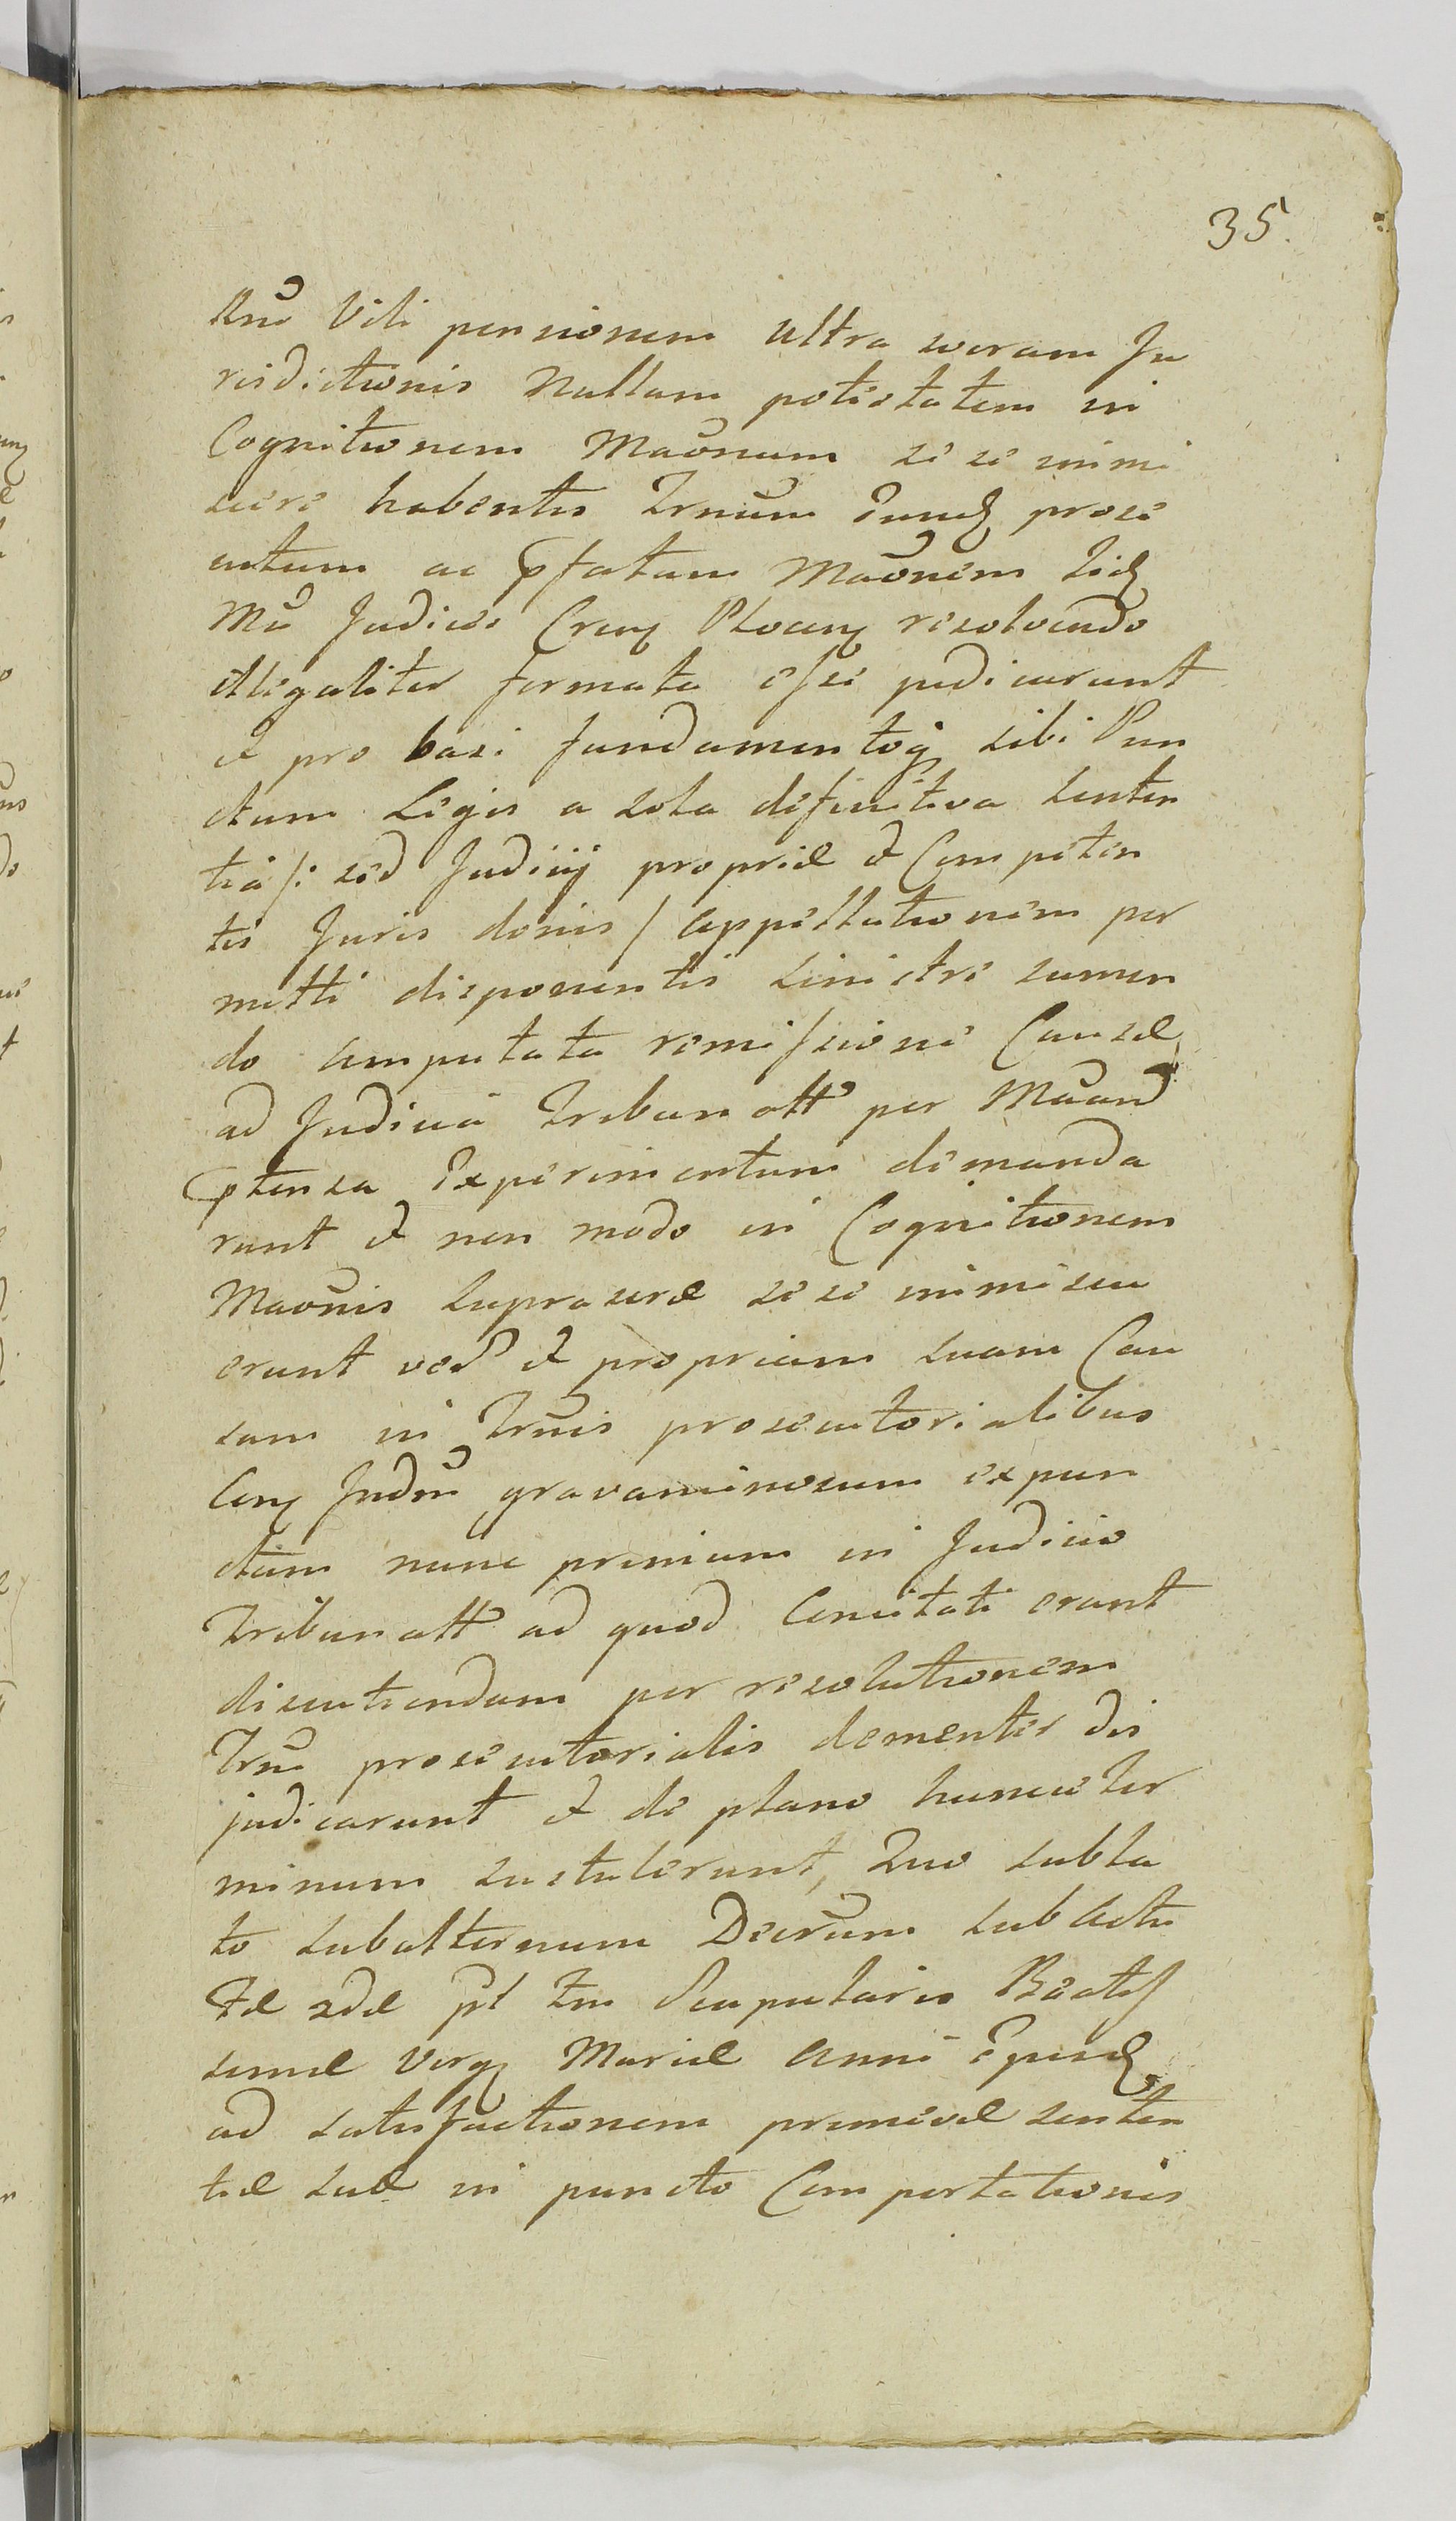 35.
Rnū Vili pensionem ultra weram Ju
risdictionis Nullam potestatem in
Cognitionem Maōnum se se immi
scere habentes Trnūm Eund prose
cutum ac pfatam Maōnem tid
Mū Judices Cren Plocen resolvendo
illegaliter formata esse judicarunt
et pro basi fundamentoq sibi Pun
ctum Legis a sola definitiva senten
tia /: sed Judicij propriæ et Competen
tis Juris donis / Appellationem per
mitti disponentis sinistre sumen
do amputata remissione Causæ
ad Judicia Tribunatt per Maand
ptensa Experimentum demanda
runt et non modo in Cognitionem
Maōnis supra seræ se se immiscu
erunt ved et propriam suam Cau
sam in Trnīs prosecutorialibus
Cen Judm gravaminosum expun
ctam nunc primum in Judicio
Tribunatt ad quod Concitati erant
discutiendam per resolutionem
Trni prosecutorialis dementer dis
judicarunt et de plano huncce ter
minum sustulerunt, Quo subla
to subalternum Decrūm sub Actu
Fæ 2dæ pt Fm Scapularis Beatis
simæ Virg Mariæ Anni Ejusd
ad satisfactionem primævæ senten
tiæ suæ in puncto Comportationis